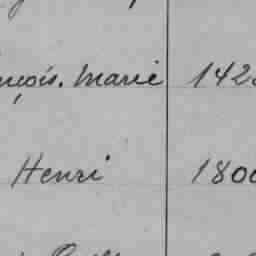 nçois. Marie 142
Henri 180